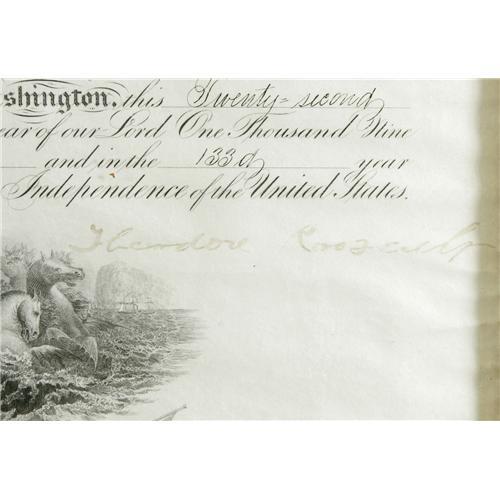 shington, this Twenty=second
ear of our Lord One Thousand Nine
and in the 133d year
Independence of the United States.
Theodore Roosevelt